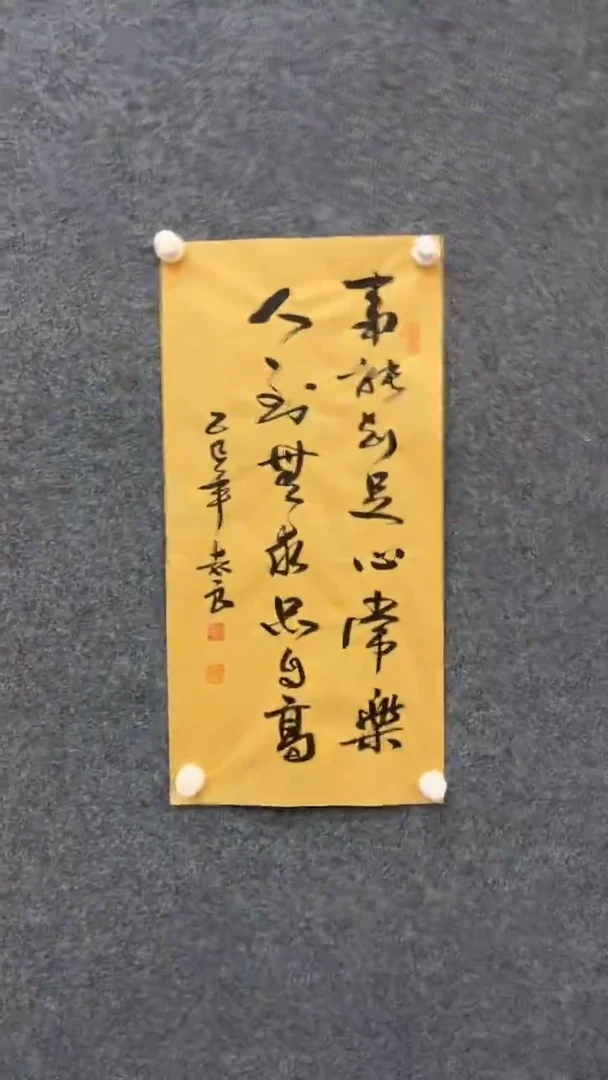 事能知足心常樂
人到無求品自高
乙巳年 袁良